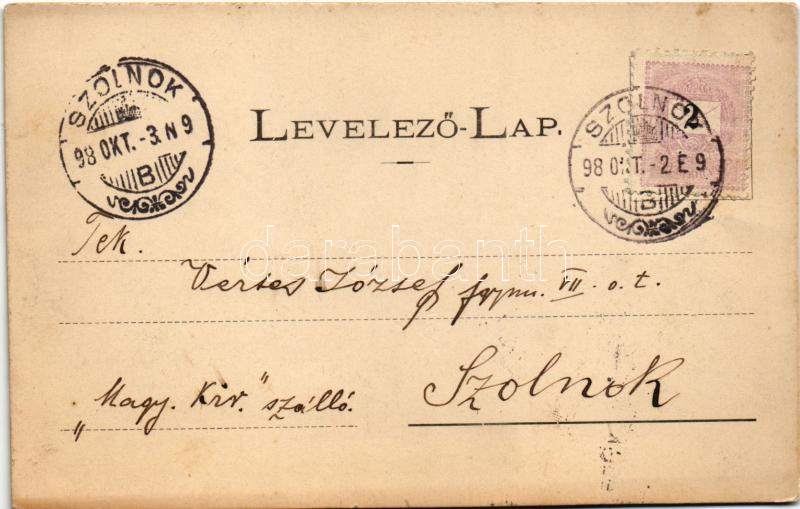 SZOLNOK
98 OKT. -3. N 9
B
LEVELEZŐ-LAP.
2
SZOLNOK
98 OKT. -2. E 9
B
Tek.
Vértes József gymn. VII. o. t.
Szolnok
„Magy. Kir.” szálló.
darabanth